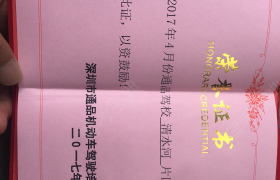 荣誉证书
HONORARY CREDENTIAL
2017年4月份通品驾校 清水河 片
此证，以资鼓励！
深圳市通品机动车驾驶培
二〇一七年